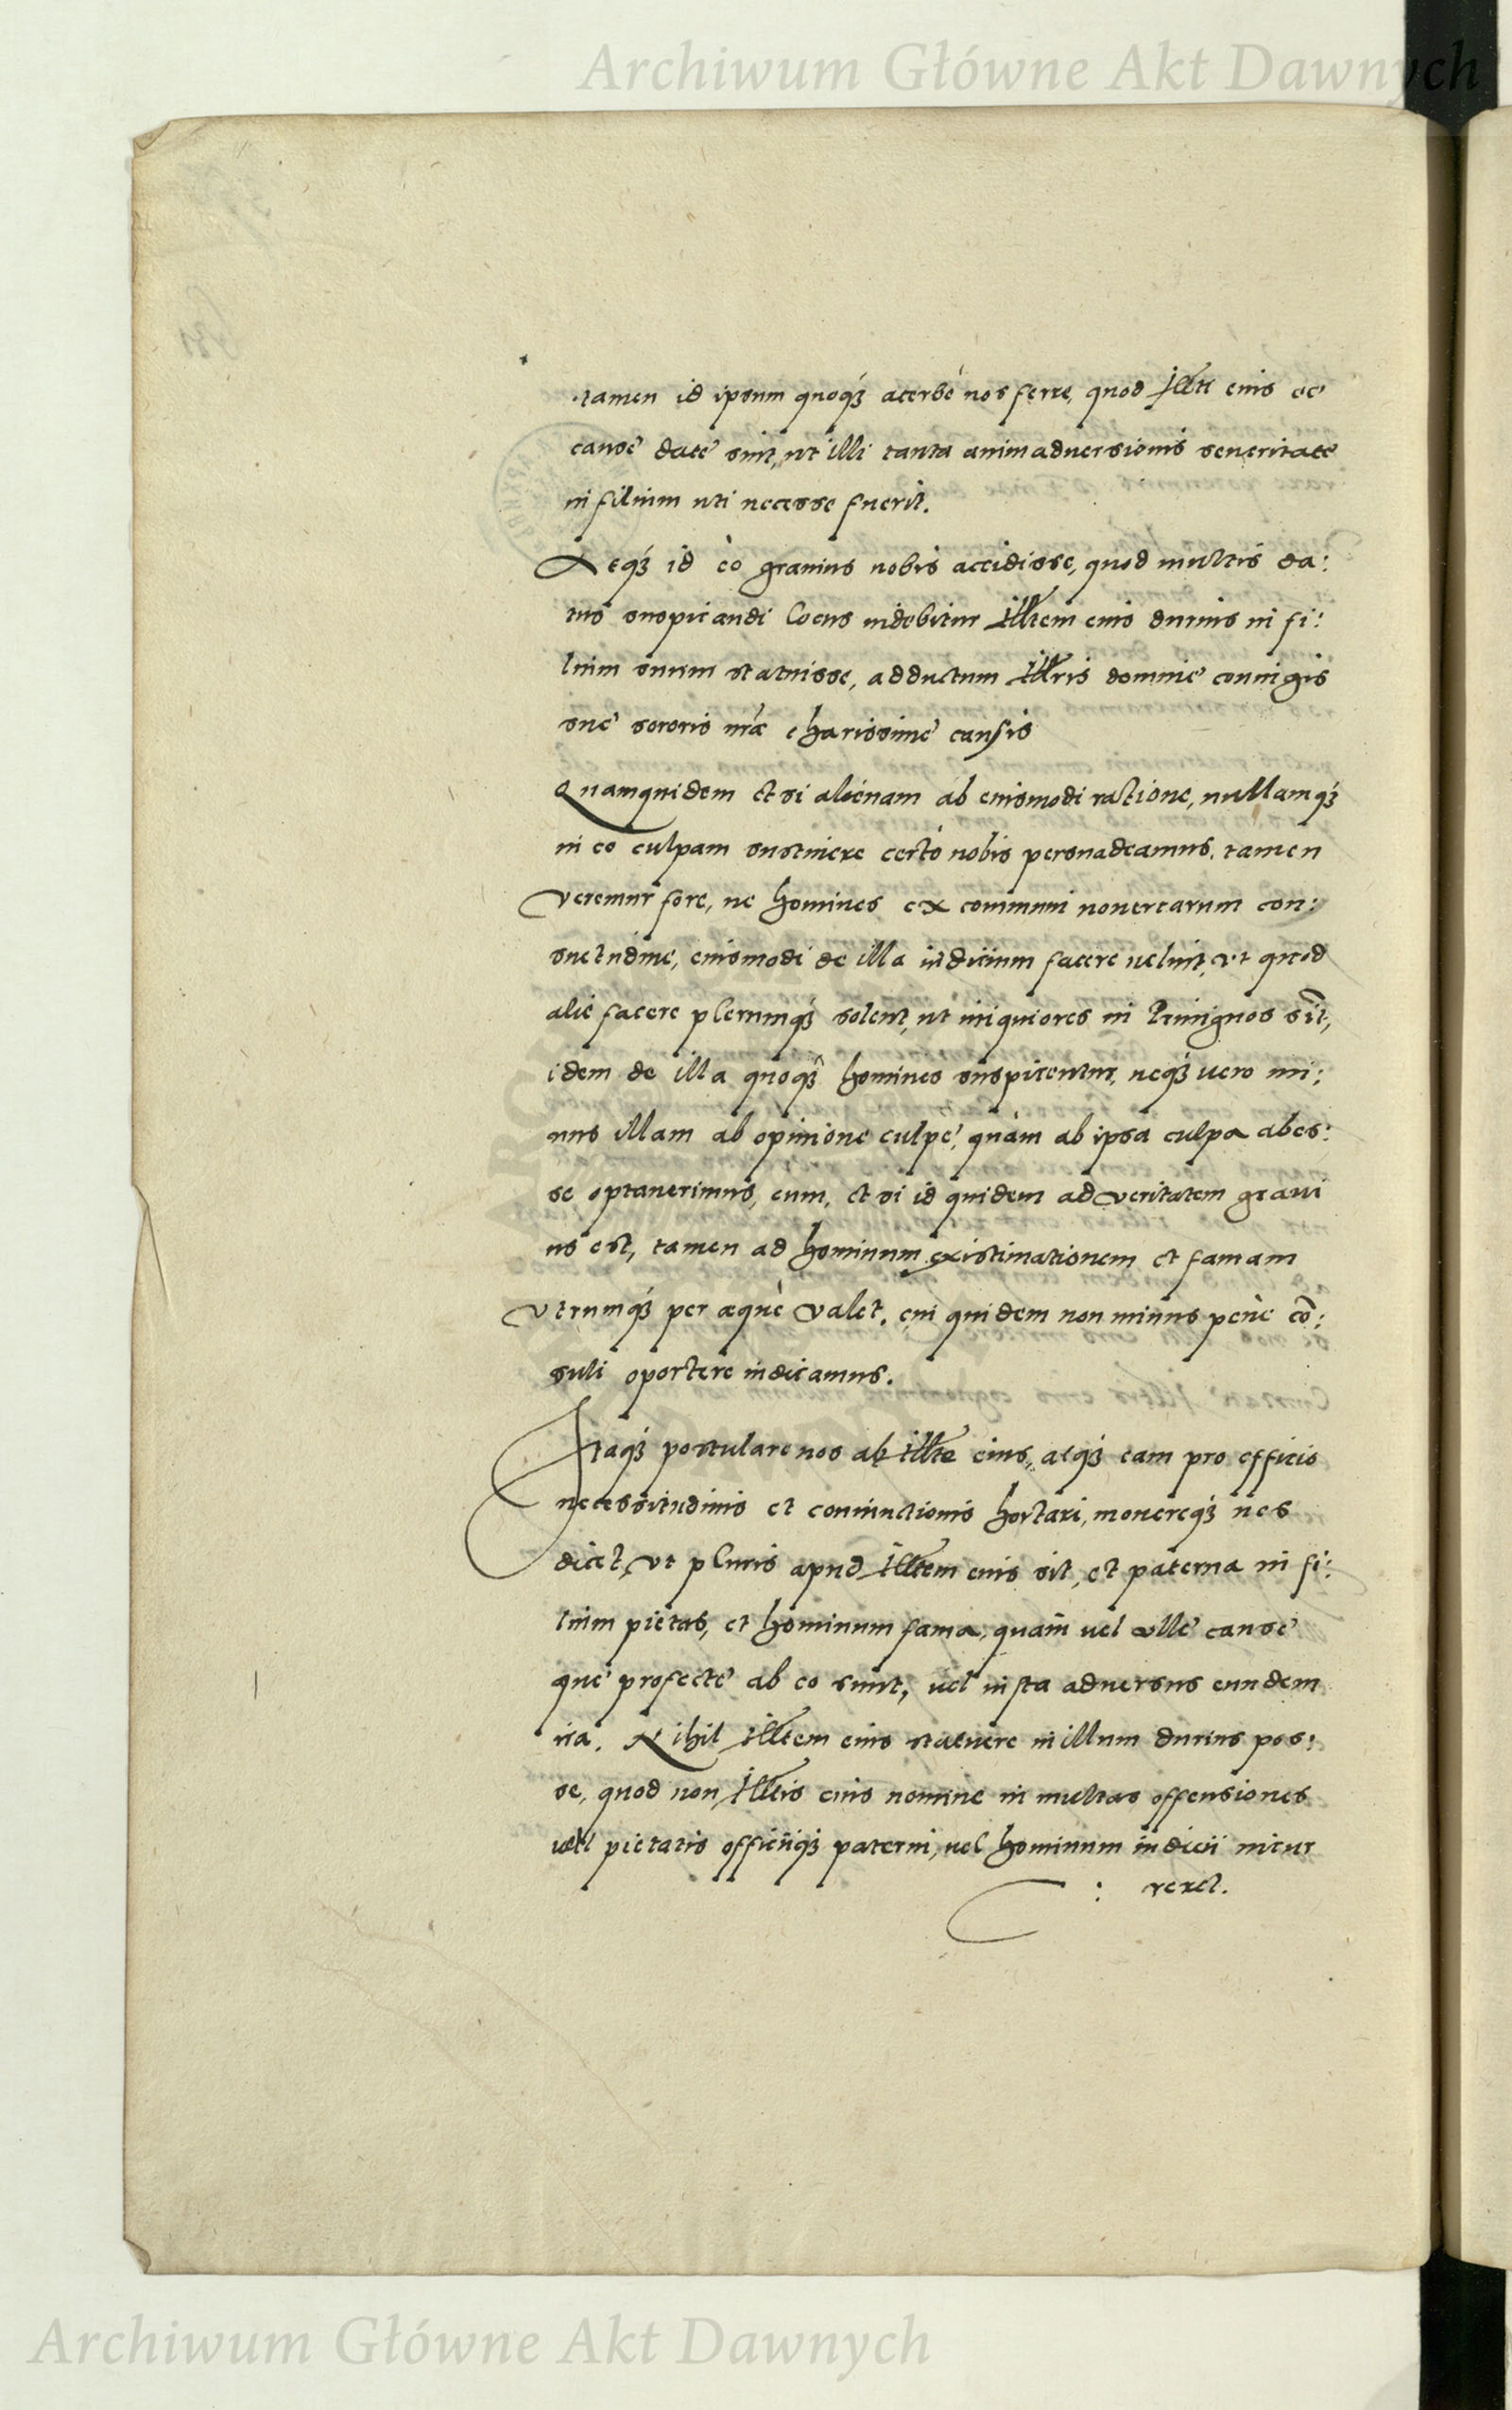 Archiwum Główne Akt Dawnych
tamen id ipsum quoq́ʒ acerbè nos ferre, quod Illti eius eę
causę datę sint, ut illi tanta animaduersionis seueritate
in filium uti necesse fuerit.
Neq́ʒ id eò grauius nobis accidisse, quod multis da:
tus suspicandi locus uidebitur Illtem eius durius in fi:
lium suum statuisse, adductum Illris dominę coniugis
suę sororis nrae charissimę causis
Quamquidem et si alienam ab eiusmodi ratione, nullamq́ʒ
in eo culpam sustinere certò nobis persuadeamus, tamen
Veremur fore, ne homines ex communi nouercarum con:
suetudine, eiusmodi de illa iudicium facere uelint, vt quod
alię facere plerumq́ʒ solent, ut iniquiores in Priuignos sīt,
idem de illa quoqʒ homines suspicentur, neq́ʒ uero mi:
nus illam ab opinione culpę, quàm ab ipsa culpa abes:
se optauerimus, cum, et si id quidem ad veritatem graui
us est, tamen ad hominum existimationem et famam
vtrumq́ʒ per aequè valet. cui quidem non minus penè cō:
suli oportere iudicamus.
Itaq́ʒ postulare nos ab Illte eius, atq́ʒ eam pro officio
necessitudinis et coniunctionis hortari, monereq́ʒ nos
dicet, vt pluris apud Illtem eius sit, et paterna in fi:
lium pietas, et hominum fama, quam uel vllę causę
quę profectę ab eo sunt, uel iusta aduersus eundem
ira. Nihil Illtem eius statuere in illum durius pos:
se, quod non Illtis eius nomine in multas offensiones
uel pietatis officiiq́ʒ paterni, uel hominum iudicii incur
reret.
Archiwum Główne Akt Dawnych